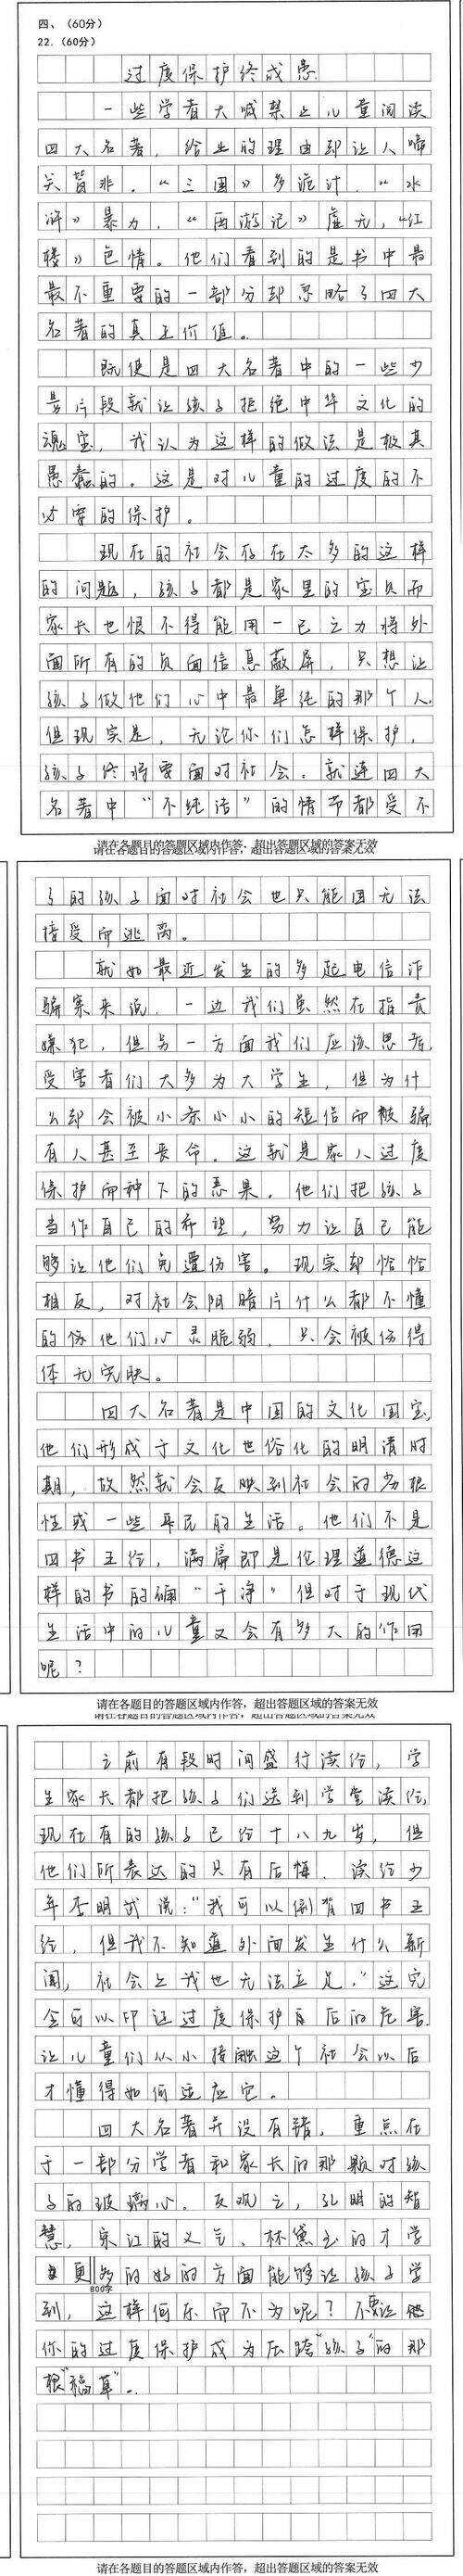 四、（60分）
22.（60分）
过度保护终成患
一些学者大喊禁止儿童阅读
四大名著，给出的理由却让人啼
笑皆非。“三国》多诡计，“水
浒》暴力，“西游记》虚无，“红
楼》色情。他们看到的是书中最
最不重要的一部分却忽略了四大
名著的真正价值。
既使是四大名著中的一些少
量片段就让孩子拒绝中华文化的
魂宝，我认为这样的做法是极其
愚蠢的。这是对儿童的过度的不
必要的保护。
现在的社会存在太多的这样
的问题，孩子都是家里的宝贝而
家长也恨不得能用一己之力将外
面所有的负面信息蔽屏，只想让
孩子做他们心中最单纯的那个人.
但现实是，无论你们怎样保护，
孩子终将要面对社会。就连四大
名著中“不纯洁”的情节都受不
请在各题目的答题区域内作答，超出答题区域的答案无效
了的孩子面对社会也只能因无法
接受而逃离。
就如最近发生的多起电信诈
骗案来说，一边我们虽然在指责
嫌犯，但另一方面我们应该思考，
受害者们大多为大学生，但为什
么却会被小小的短信而被骗
有人甚至丧命。这就是家人过度
保护而种下的恶果。他们把孩子
当作自己的希望，努力让自己能
够让他们免遭伤害。现实却恰恰
相反，对社会阴暗片什么都不懂
的你他们心灵脆弱，只会被伤得
体无完肤。
四大名著是中国的文化国宝，
他们形成于文化世俗化的明清时
期，故然就会反映到社会的劣根
性或一些平民的生活。他们不是
四书五经，满篇即是伦理道德这
样的书的确“干净”但对于现代
生活中的儿童又会有多大的作用
呢？
请在各题目的答题区域内作答，超出答题区域的答案无效
之前有段时间盛行读经，学
生家长都把孩子们送到学堂读经，
现在有的孩子已经十八九岁，但
他们所表达的只有后悔，读经少
年李明试说：“我可以倒背四书五
经，但我不知道外面发生什么新
闻，社会上我也无法立足。”这完
全可以印证过度保护背后的危害.
让儿童们从小接触这个社会以后
才懂得如何适应它。
四大名著并没有错，重点在
于一部分学者和家长的那颗对孩
子的玻璃心。反观之，孔明的智
慧，宋江的义气、林黛玉的才学
更多的好的方面能够让孩子学
800字
到，这样何乐而不为呢？不要让
你的过度保护成为压跨“孩子”的那
根“稻草”。
请在各题目的答题区域内作答，超出答题区域的答案无效